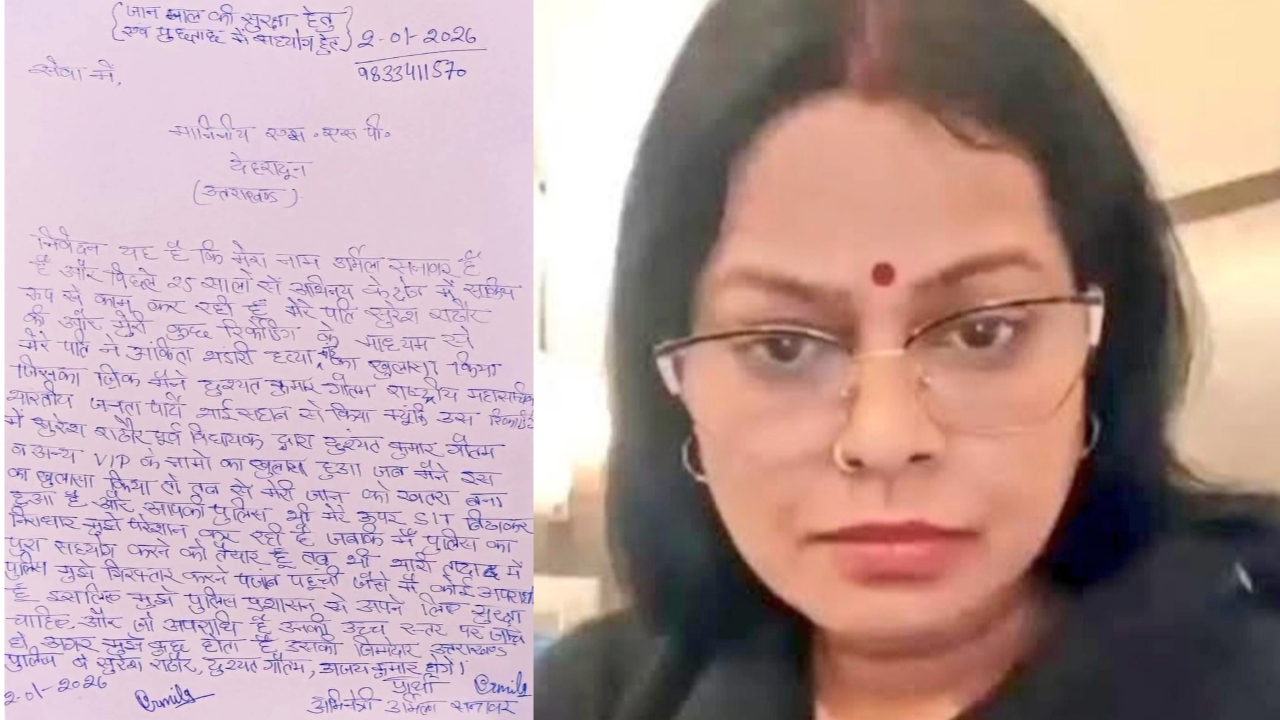 {जान माल की सुरक्षा हेतु
एवं पुछताछ में सहयोग हेतु}
2-01-2026
9833411570
सेवा में,
माननीय एस॰ एस पी॰
देहरादून
(उत्तराखण्ड)
निवेदन यह है कि मेरा नाम उर्मिला सनावर है
है और पिछले 25 सालों से अभिनय के क्षेत्र में सक्रिय
रूप से काम कर रही हूँ मेरे पति सुरेश राठौर
की और मेरी कुछ रिकॉर्डिंग के माध्यम से
मेरे पति ने अंकिता भंडारी हत्या का खुलासा किया
जिसका जिक्र मैंने दुष्यंत कुमार गौतम राष्ट्रीय महासचिव
भारतीय जनता पार्टी भाई सहाब से किया क्यूंकि उस रिकॉर्डिंग
में सुरेश राठौर पूर्व विधायक द्वारा दुष्यंत कुमार गौतम
व अन्य VIP के नामो का खुलासा हुआ जब मैंने इस
का खुलासा किया तो तब से मेरी जान को खतरा बना
हुआ है और आपकी पुलिस भी मेरे ऊपर SIT बिठाकर
निराधार मुझे परेशान कर रही है जबकि मैं पुलिस का
पुरा सहयोग करने को तैयार हूँ तब भी भारी तादाद में
पुलिस मुझे गिरफ्तार करने पहुंची जैसे मैं कोई अपराधी
हूँ इसलिए मुझे पुलिस प्रशासन से अपने लिए सुरक्षा
चाहिए और जो अपराधि है उनकी उच्च स्तर पर जाँच
हो अगर मुझे कुछ होता है इसका जिम्मेदार उत्तराखण्ड
पुलिस व सुरेश राठौर, दुष्यंत गौतम, अजय कुमार होंगे।
2-01-2026
Urmila
प्रार्थी
Urmila
अभिनेत्री उर्मिला सनावर